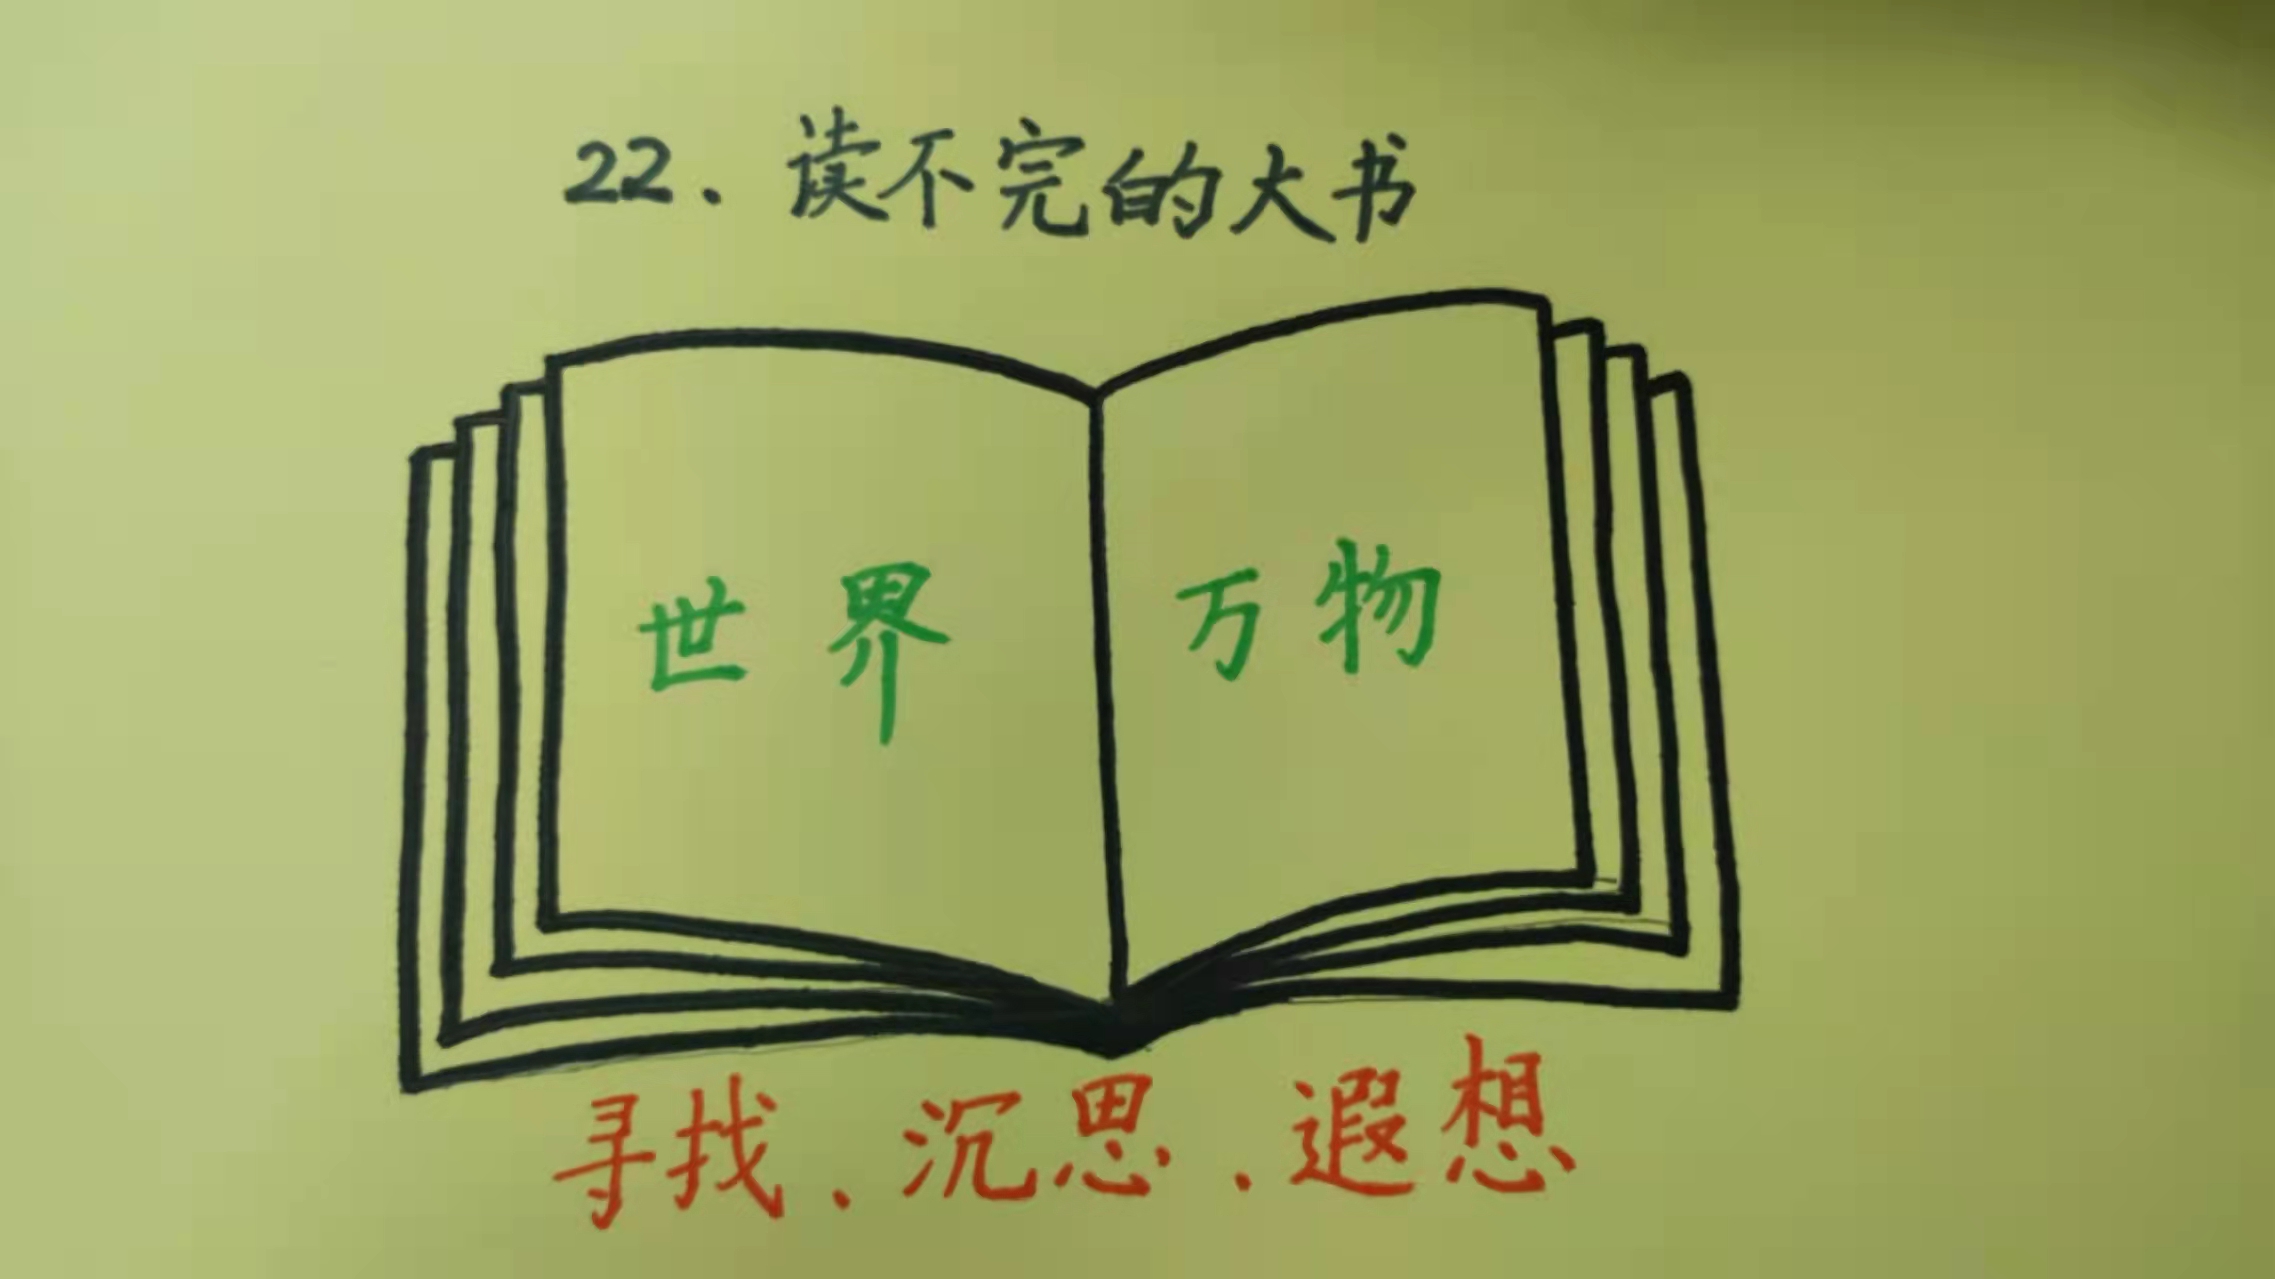 22、读不完的大书
世界 万物
寻找、沉思、遐想